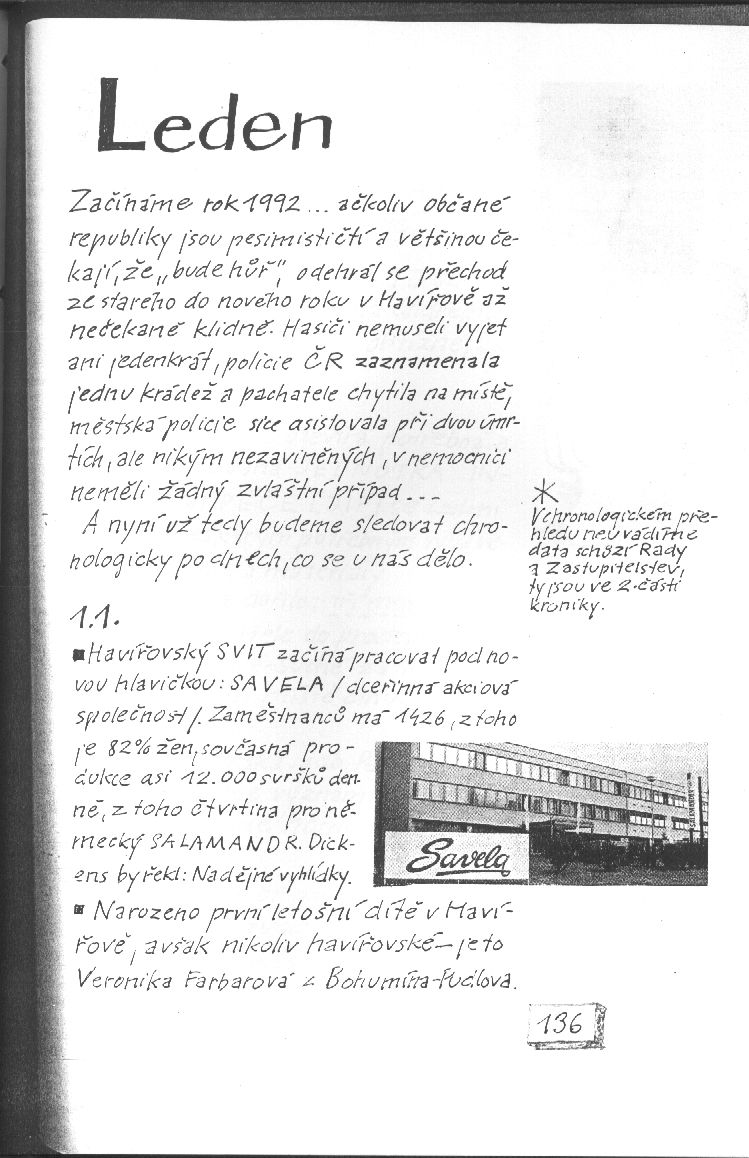 Leden
Začínáme rok 1992... ačkoliv občané
republiky jsou pesimističtí a většinou če-
kají, že „bude hůř", odehrál se přechod
ze starého do nového roku v Havířově až
nečekaně klidně. Hasiči nemuseli vyjet
ani jedenkrát, policie ČR zaznamenala
jednu krádež a pachatele chytila na místě,
městská policie sice asistovala při dvou úmr-
tích, ale nikým nezaviněných, v nemocnici
neměli žádný zvláštní případ...
A nyní už tedy budeme sledovat chro-
nologicky po dnech, co se u nás dělo.
*
V chronologickém pře-
hledu neuvádíme
data schůzí Rady
a Zastupitelstev,
ty jsou ve 2. části
kroniky.
1.1.
■ Havířovský SVIT začíná pracovat pod no-
vou hlavičkou: SAVELA /dceřinná akciová
společnost/. Zaměstnanců má 1426, z toho
je 82% žen, současná pro-
dukce asi 12.000 svršků den-
ně, z toho čtvrtina pro ně-
mecký SALAMANDR. Dick-
ens by řekl: Nadějné vyhlídky.
Savela
■ Narozeno první letošní dítě v Haví-
řově, avšak nikoliv havířovské – je to
Veronika Farbarová z Bohumína-Pudlova.
136